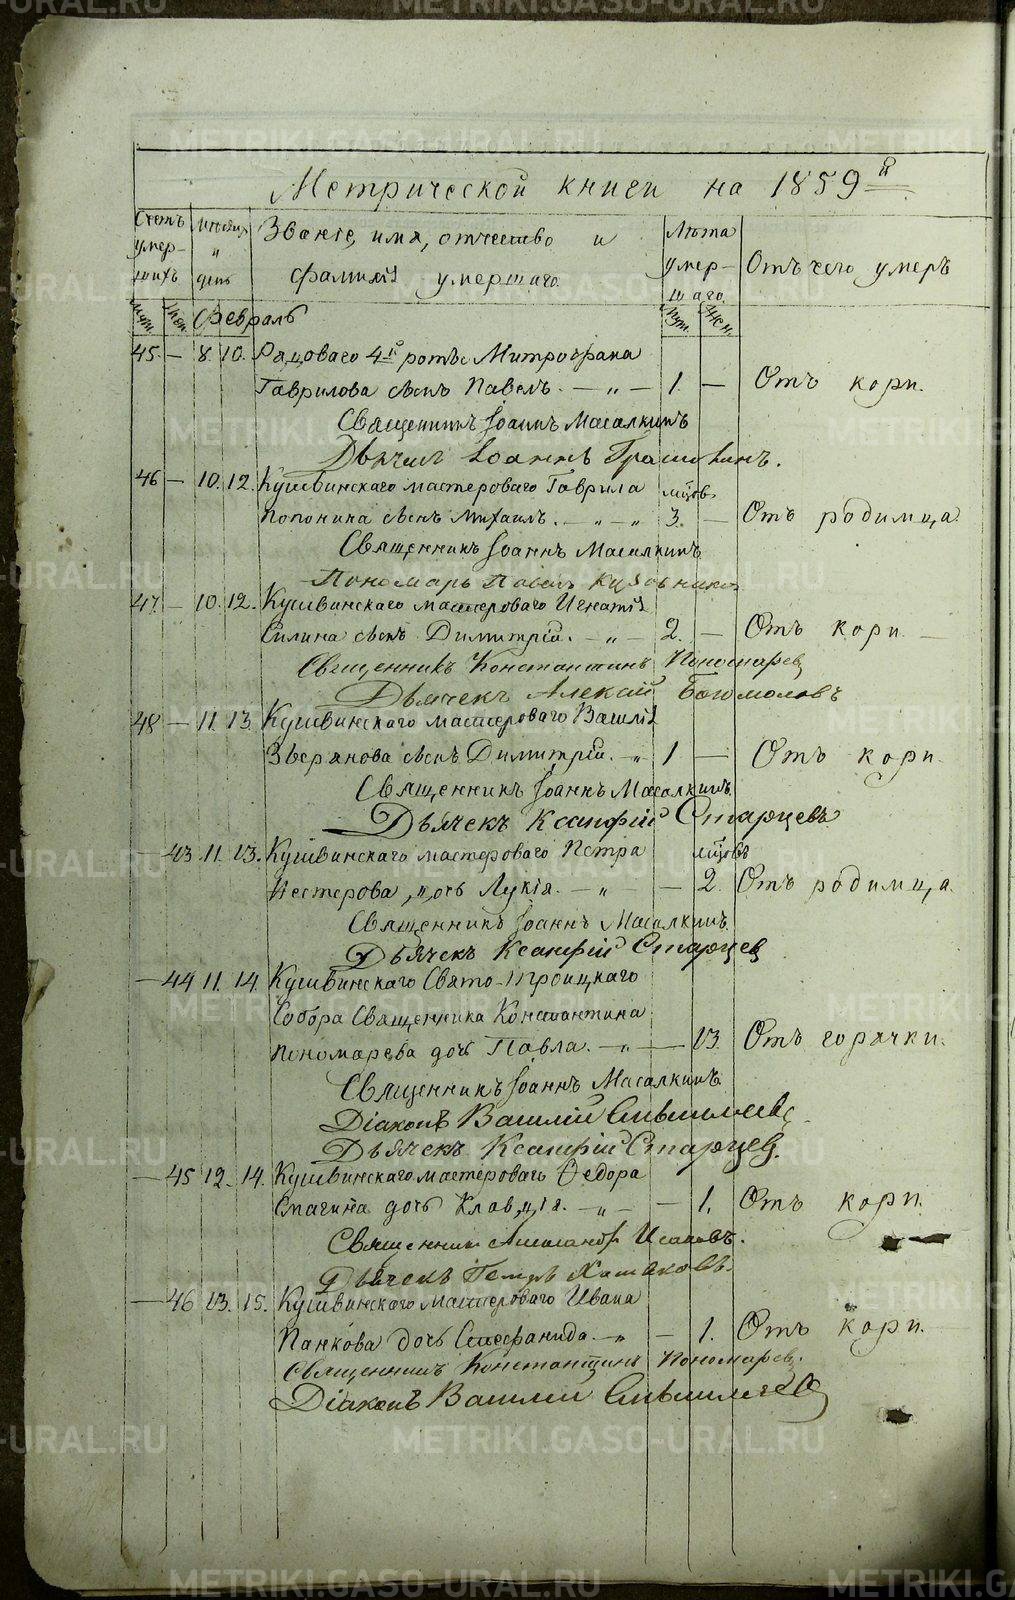 Метрической книги на 1859й
Счетъ умер-шихъ
Месяцъ и день
Званіе, имя, отчество и фамилія умершаго.
Лѣта умер-шаго.
Отъ чего умеръ
Муж. Жен.
Февраль
Муж. Жен.
45. — 8 10. Рядоваго 4й роты Митрофана
Гаврилова сынъ Павелъ. — „ — 1. — Отъ кори.
Священникъ Іоаннъ Масалкинъ
Дьячекъ Іоаннъ
46 — 10. 12. Кушвинскаго мастероваго Гаврила мцов.
Попонина сынъ Михаилъ. — „ — 3. — Отъ родимца.
Священникъ Іоаннъ Масалкинъ
Пономарь Павелъ Кузовников
47. — 10. 12. Кушвинскаго мастероваго Игнатія
Силина сынъ Димитрій. — „ — 2. — Отъ кори —
Священникъ Константинъ Пономарев
Дьячекъ Алексій Богомоловъ
48 — 11. 13. Кушвинскаго мастероваго Василія
Зверянова сынъ Димитрій. „ 1 — Отъ кори.
Священникъ Іоаннъ Масалкинъ.
Дьячекъ Ксанфій Старцевъ
— 43 11. 13. Кушвинскаго мастероваго Петра мцовъ
Нестерова, дочь Лукія. — „ — — 2. Отъ родимца.
Священникъ Іоаннъ Масалкинъ.
Дьячекъ Ксанфій Старцев
— 44 11. 14. Кушвинскаго Свято-Троицкаго
Собора Священника Константина
Пономарева дочь Павла. — „ — 13. Отъ горячки.
Священникъ Іоаннъ Масалкинъ
Діаконъ Василій
Дьячекъ Ксанфій Старцев.
— 45 12. 14. Кушвинскаго мастероваго Ѳедора
Смагина дочь Клавдія. — „ — — 1. Отъ кори.
Священникъ Александръ Исаковъ.
Дьячекъ Петръ
— 46 13. 15. Кушвинскаго мастероваго Ивана
Панкова дочь Стефанида. „ — 1. Отъ кори.
Священникъ Константинъ Пономарев.
Діаконъ Василій
METRIKI.GASO-URAL.RU